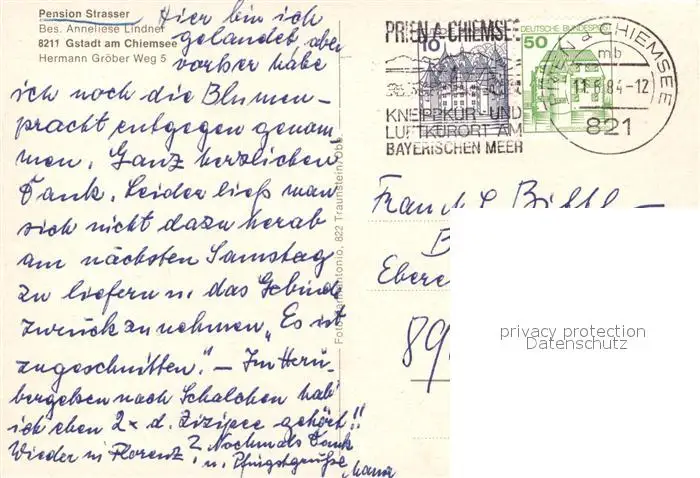 Pension Strasser
Bes. Anneliese Lindner
8211 Gstadt am Chiemsee
Hermann Gröber Weg 5
Hier bin ich
gelandet, aber
vorher habe
ich noch die Blumen-
pracht entgegen genom
men. Ganz herzlichen
Dank. Leider ließ man
sich nicht dazu herab
am nächsten Samstag
zu liefern u. das Gebinde
zurückzunehmen „Es ist
zugeschnitten." – Im Herü-
bergehen nach Schalchen hab'
ich eben 2x d. Zizipee gehört!!
Wieder in Florenz? Nochmals Dank
u. Pfingstgrüße
822 Traunstein/Obb.
PRIEN A. CHIEMSEE
KNEIPPKUR- UND
LUFTKURORT AM
BAYERISCHEN MEER
10
DEUTSCHE BUNDESPOST
50
PRIEN a CHIEMSEE
mb
11.6.84-12
821
privacy protection
Datenschutz